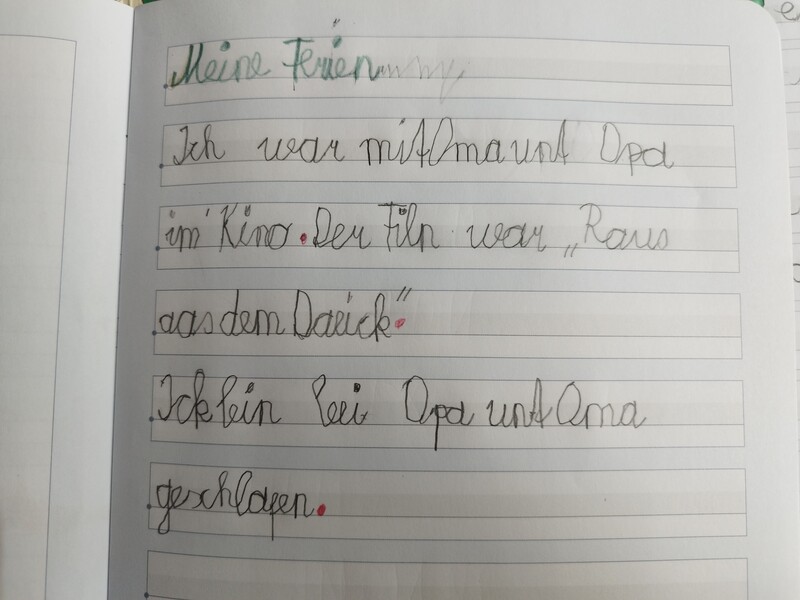 Meine Ferien
Ich war mit Oma unt Opa
im Kino. Der Film war „Raus
aas dem Daeick“.
Ick bin bei Opa unt Oma
geschlafen.